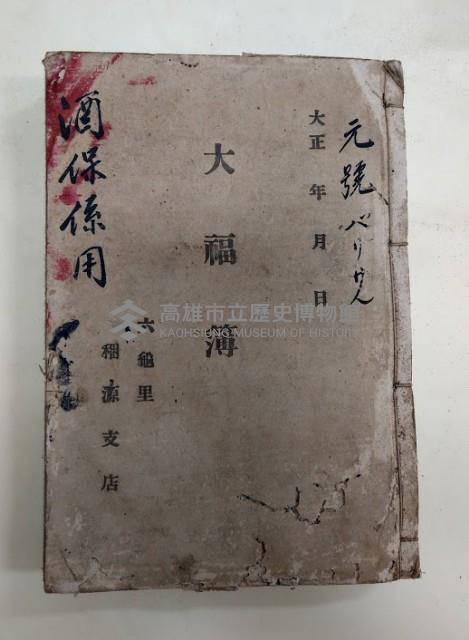 元號 バリけん
大正 年 月 日
大福簿
六龜里
源支店
酒保係用
高雄市立歷史博物館
KAOHSIUNG MUSEUM OF HISTORY